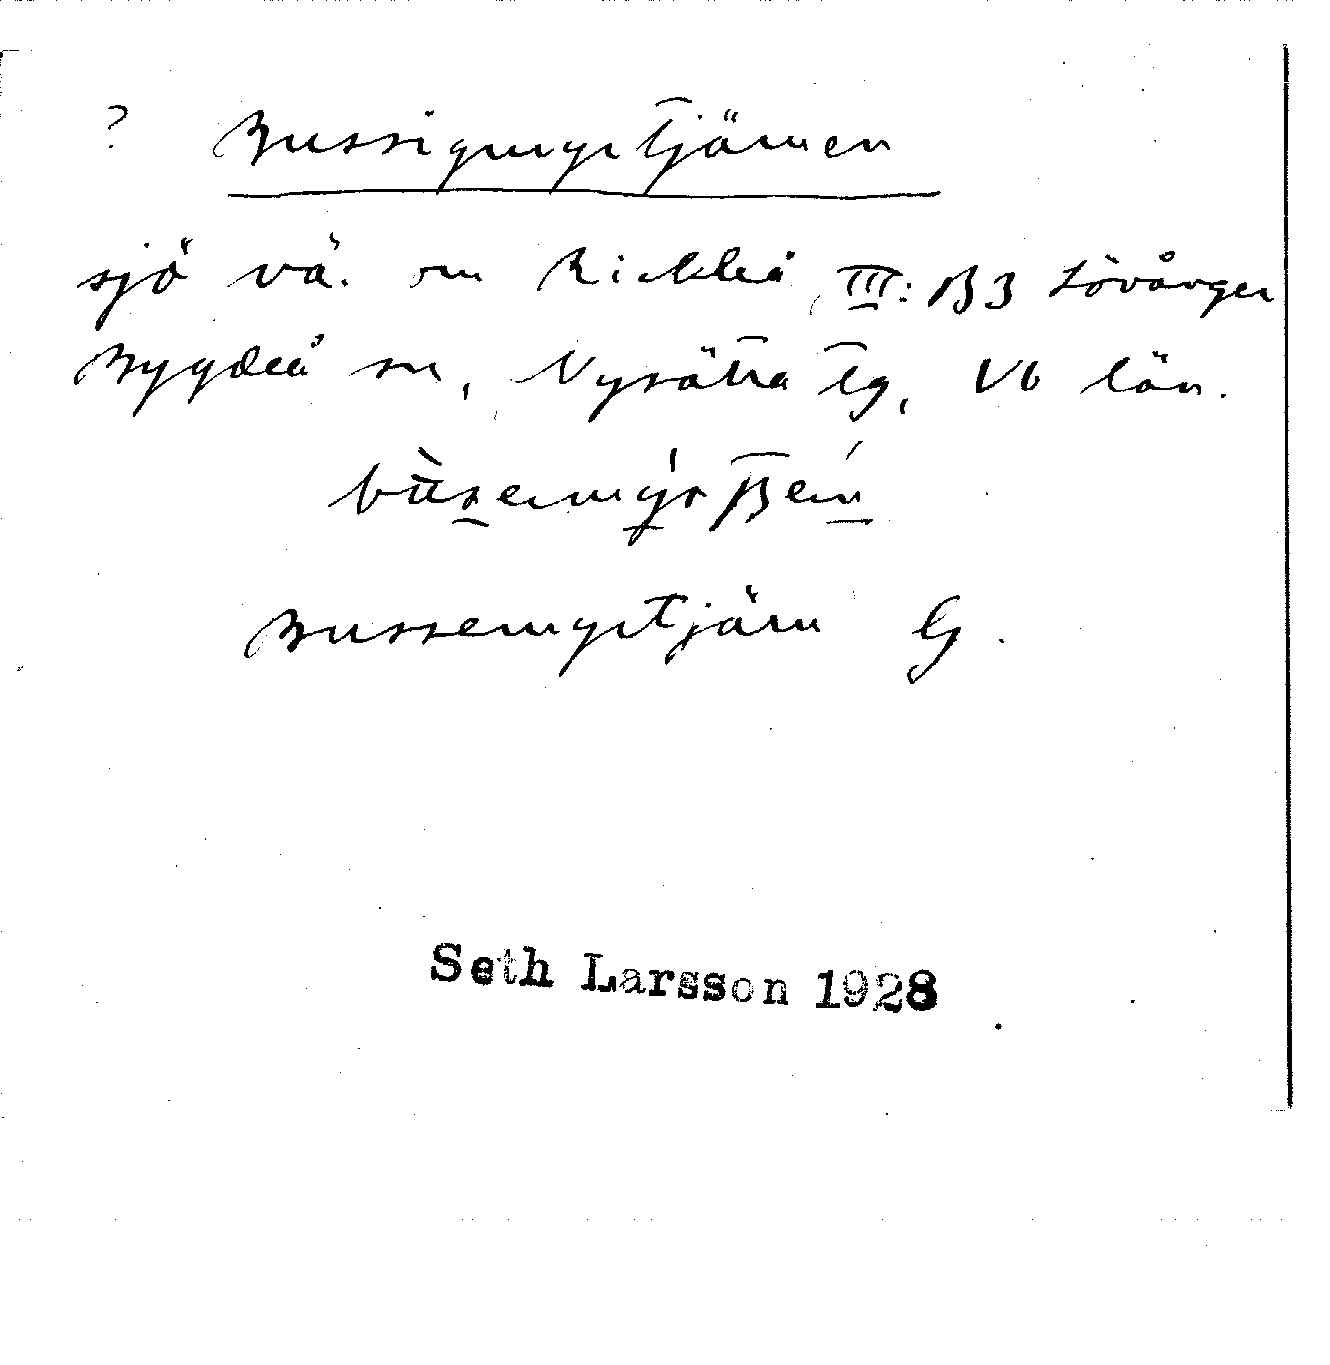 ? Bussigmyrtjärnen
sjö vä. om Rickleå, III: B3 Lövånger
Bygdeå sn, Nysätra tg, Vb län.
Bussemyrtjärn G.
Seth Larsson 1928